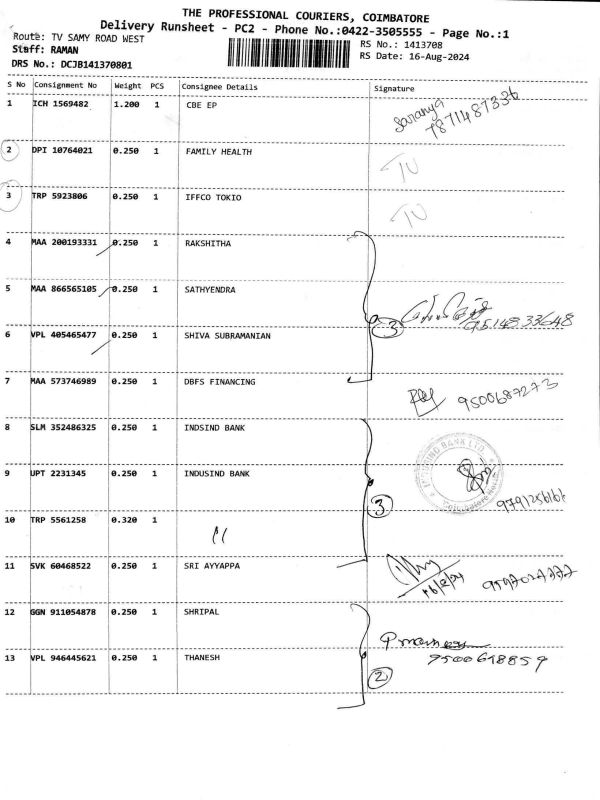 THE PROFESSIONAL COURIERS, COIMBATORE
Delivery Runsheet - PC2 - Phone No.:0422-3505555 - Page No.:1
Route: TV SAMY ROAD WEST
RS No.: 1413708
Staff: RAMAN
RS Date: 16-Aug-2024
DRS No.: DCJB141370801
S No Consignment No Weight PCS Consignee Details Signature
1 ICH 1569482 1.200 1 CBE EP
Saranya
7871487336
2 DPI 10764021 0.250 1 FAMILY HEALTH
3 TRP 5923806 0.250 1 IFFCO TOKIO
4 MAA 200193331 0.250 1 RAKSHITHA
5 MAA 866565105 0.250 1 SATHYENDRA
3 9514833648
6 VPL 405465477 0.250 1 SHIVA SUBRAMANIAN
7 MAA 573746989 0.250 1 DBFS FINANCING
9500687273
8 SLM 352486325 0.250 1 INDSIND BANK
INDUSIND BANK LTD.
9 UPT 2231345 0.250 1 INDUSIND BANK
3
10 TRP 5561258 0.320 1 〃
11 SVK 60468522 0.250 1 SRI AYYAPPA
16/8/24
12 GGN 911054878 0.250 1 SHRIPAL
13 VPL 946445621 0.250 1 THANESH
9500618859
2